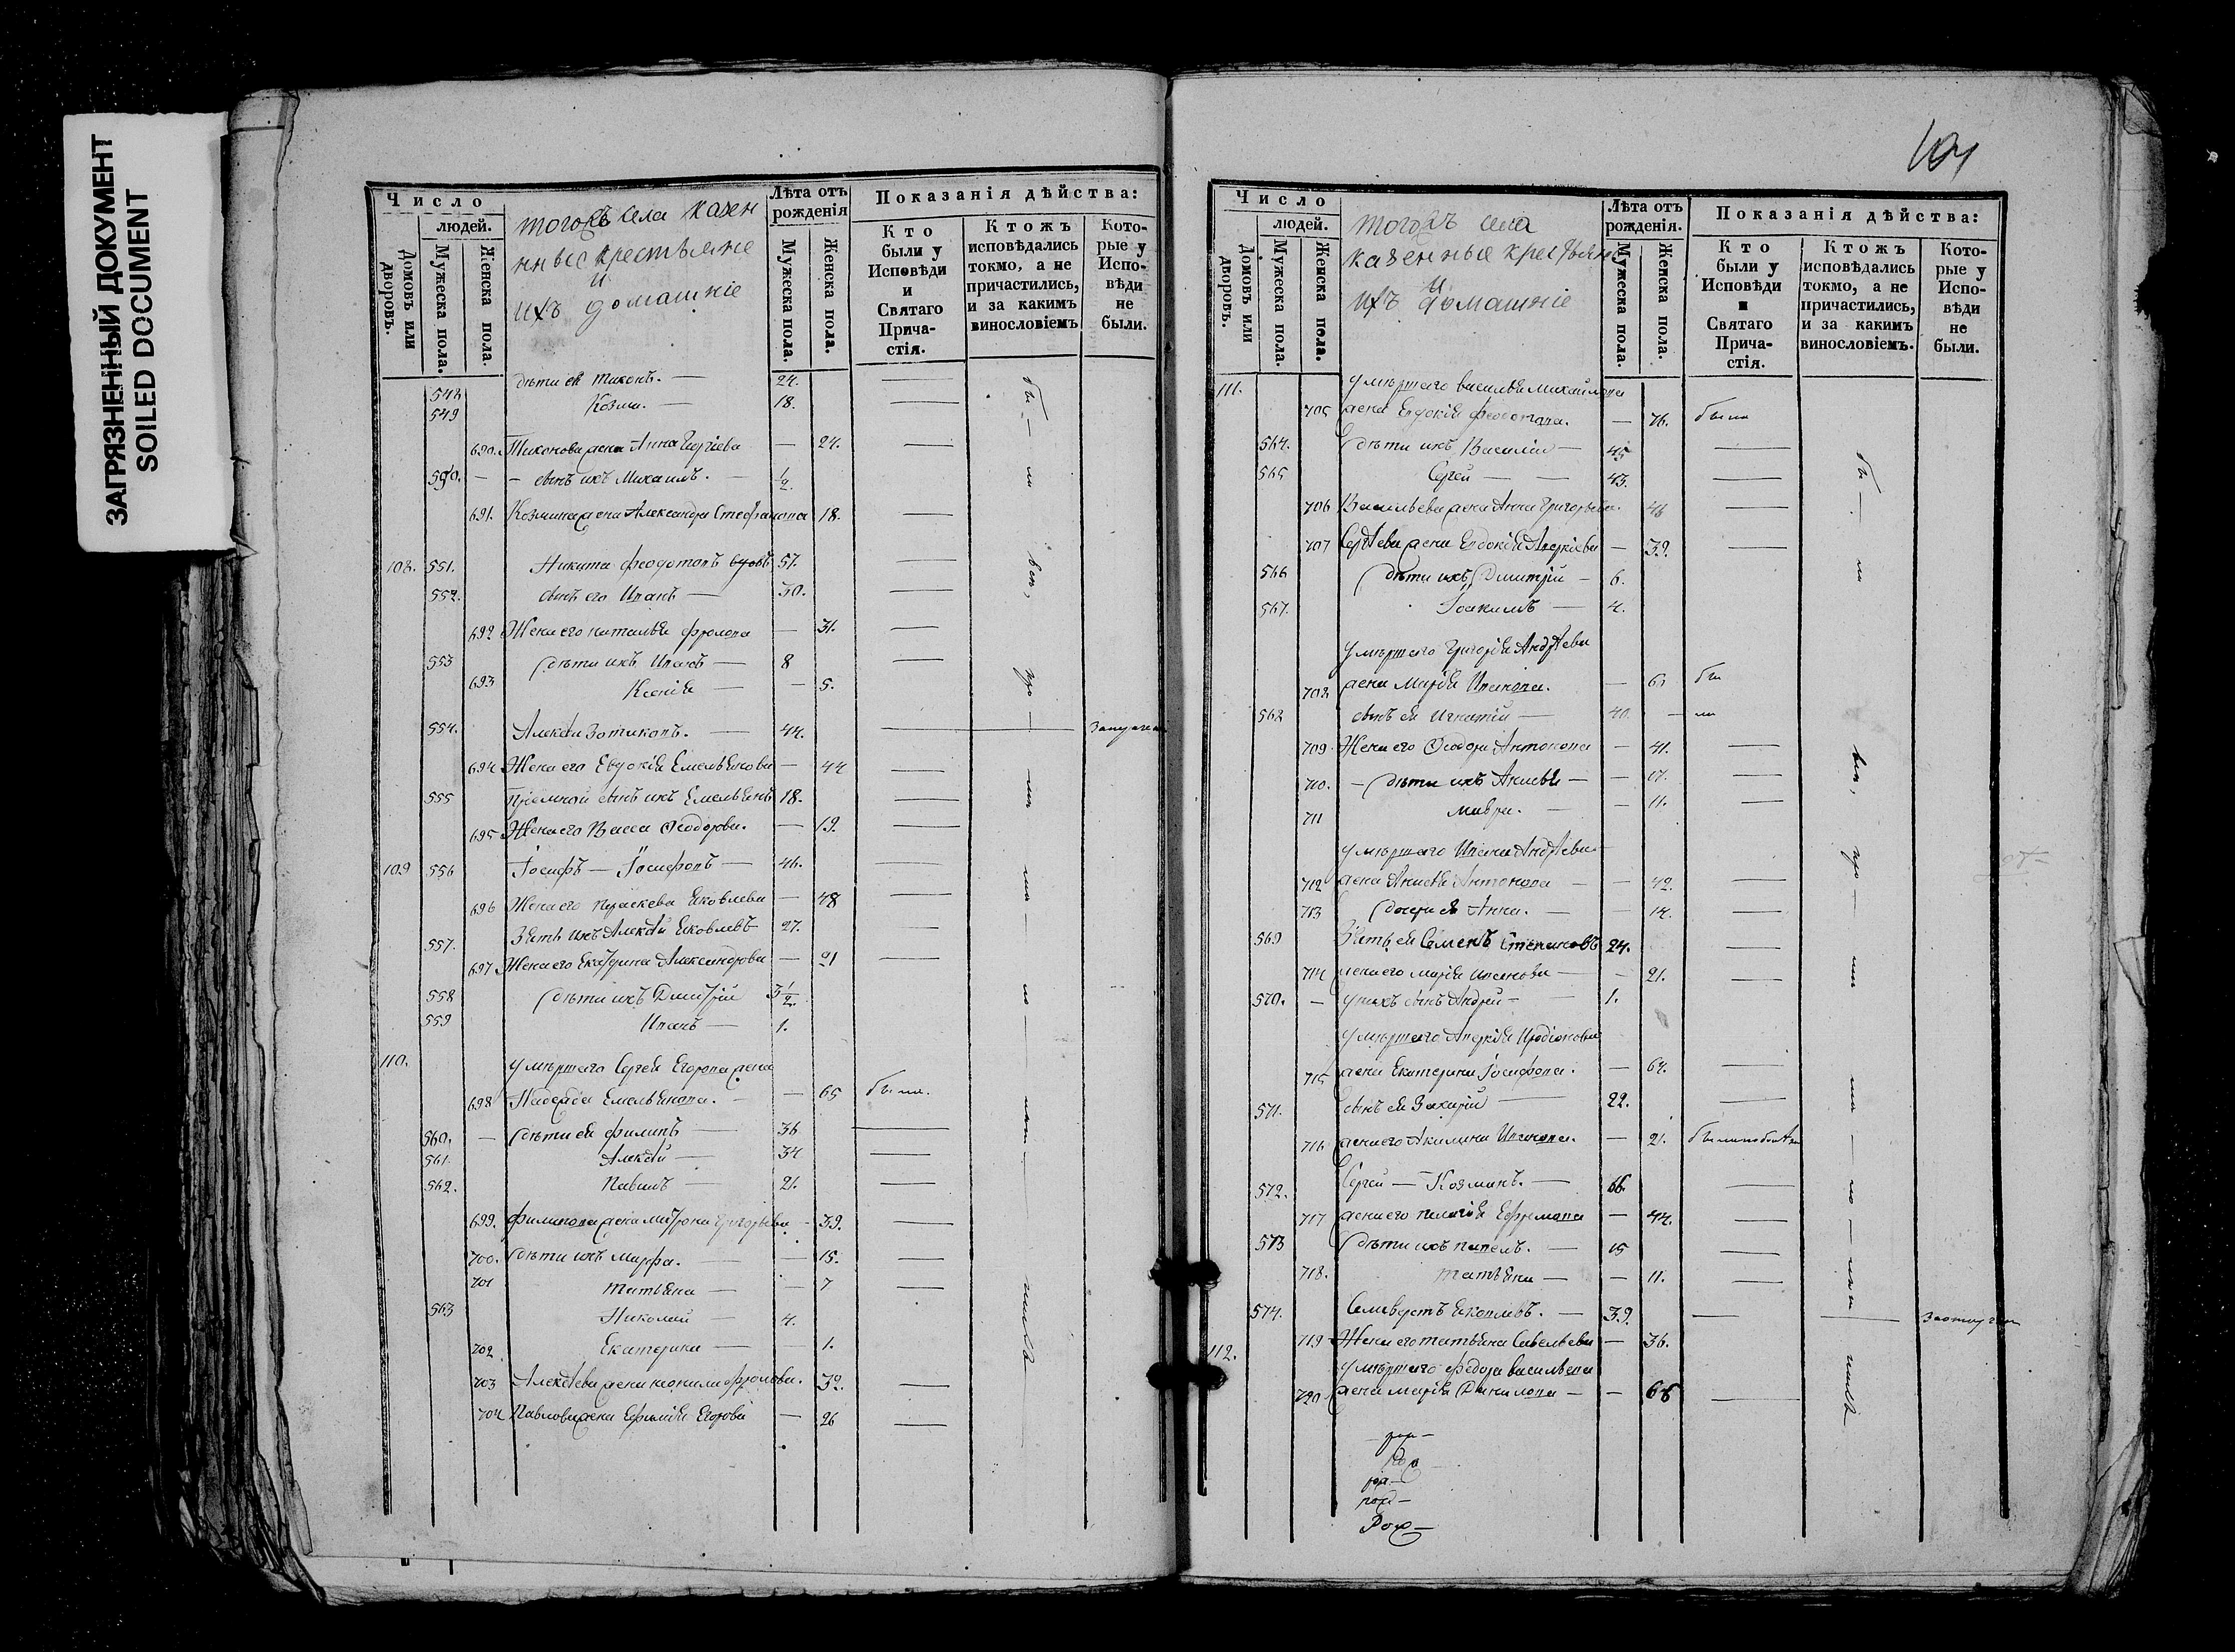 ЗАГРЯЗНЕННЫЙ ДОКУМЕНТ
SOILED DOCUMENT
Число
людей.
Домовъ или дворовъ.
Мужеска пола.
Женска пола.
тогожъ села казен
нные крестьяне
и
ихъ домашніе
Лѣта отъ рожденія
Мужеска пола.
Женска пола.
Показанія дѣйства:
Кто были у Исповѣди и Святаго Прича-стія.
Ктожъ исповѣдались токмо, а не причастились, и за какимъ винословіемъ
Кото-рые у Испо-вѣди не были.
548 дѣти ея Тихонъ. — 24.
549 Козма. — 18.
690. Тихонова жена Анна Георгіева — 24.
550. — сынъ ихъ Михаилъ. — ½.
691. Козмина жена Александра Стефанова 18.
108. 551. Никита Феодотовъ вдовъ 57.
552. сынъ его Иванъ — 30.
692 Жена его Наталья Фролова — 31.
553 дѣти ихъ Иванъ — 8
693 Ксенія — — 5.
554. Алексѣй Зотиковъ. — 44.
694 Жена его Евдокія Емельянова — 44
555 Пріемной сынъ ихъ Емельянъ 18.
695 Жена его Васса Ѳеодорова. — 19.
109 556 Іосифъ — Іосифовъ — 46.
696 Жена его Параскева Яковлева — 48
557. Зять ихъ Алексѣй Яковлевъ 27.
697 Жена его Екатерина Александрова — 21
558 дѣти ихъ Дмитрій 3½
559 Иванъ — 1.
110. умершаго Сергея Егорова жена
698 Надежда Емельянова. — 65 была.
560. — дѣти ея Филипъ — 36
561. Алексѣй — 34
562. Павелъ — 21.
699. Филипова жена Матрона Григорьева — 39.
700. дѣти ихъ Марфа. — 15.
701 Татьяна — — 7
563 Николай — 4.
702 Екатерина — 1.
703 Алексѣева жена Неонила Фролова. 32.
704 Павлова жена Ефимія Егорова — 26
104
Число
людей.
Домовъ или дворовъ.
Мужеска пола.
Женска пола.
тогожъ села
казенные крестьяне
и
ихъ домашніе
Лѣта отъ рожденія.
Мужеска пола.
Женска пола.
Показанія дѣйства:
Кто были у Исповѣди и Святаго Прича-стія.
Ктожъ исповѣдались токмо, а не причастились, и за какимъ винословіемъ.
Кото-рые у Испо-вѣди не были.
111. умершаго Василья Михайлова
705 жена Евдокія Феодотова. — 76. была
564. дѣти ихъ Василій — 45
565 Сергей — — 43.
706 Васильева жена Анна Григорьева. 46
707 Сергѣева жена Евдокія Аверкіева — 39.
566 дѣти ихъ Дмитрій — 6.
567. Іоакимъ — 4.
умершаго Григорія Андрѣева
708 жена Марія Иванова. — бы
568 сынъ ея Игнатій — 40. — ли
709 Жена его Ѳеодора Антонова — 41.
710. — дѣти ихъ Анисья — — 17.
711 Мавра. — — 11.
умершаго Ивана Андрѣева
712 жена Анисья Антонова — — 42.
713 дочери ея Анна. — — 14.
569 Зять ея Семенъ Степановъ 24.
714 жена его Марія Иванова — — 21.
570. — у нихъ сынъ Андрей — 1.
умершаго Аверкія Иродіонова
715 жена Екатерина Іосифова. — 64.
571. сынъ ея Захарій — 22.
716 жена его Акилина Иванова. — 21.
572. Сергей — Козминъ. — 66.
717 жена его Пелагія Ефремова — 44.
573 дѣти ихъ Павелъ. — 15
718. Татьяна — — 11.
574. Селиверстъ Яковлевъ. — 39.
719 Жена его Татьяна Савельева — 36.
112. умершаго Федора Васильева
720 жена Марія Данилова — — 68